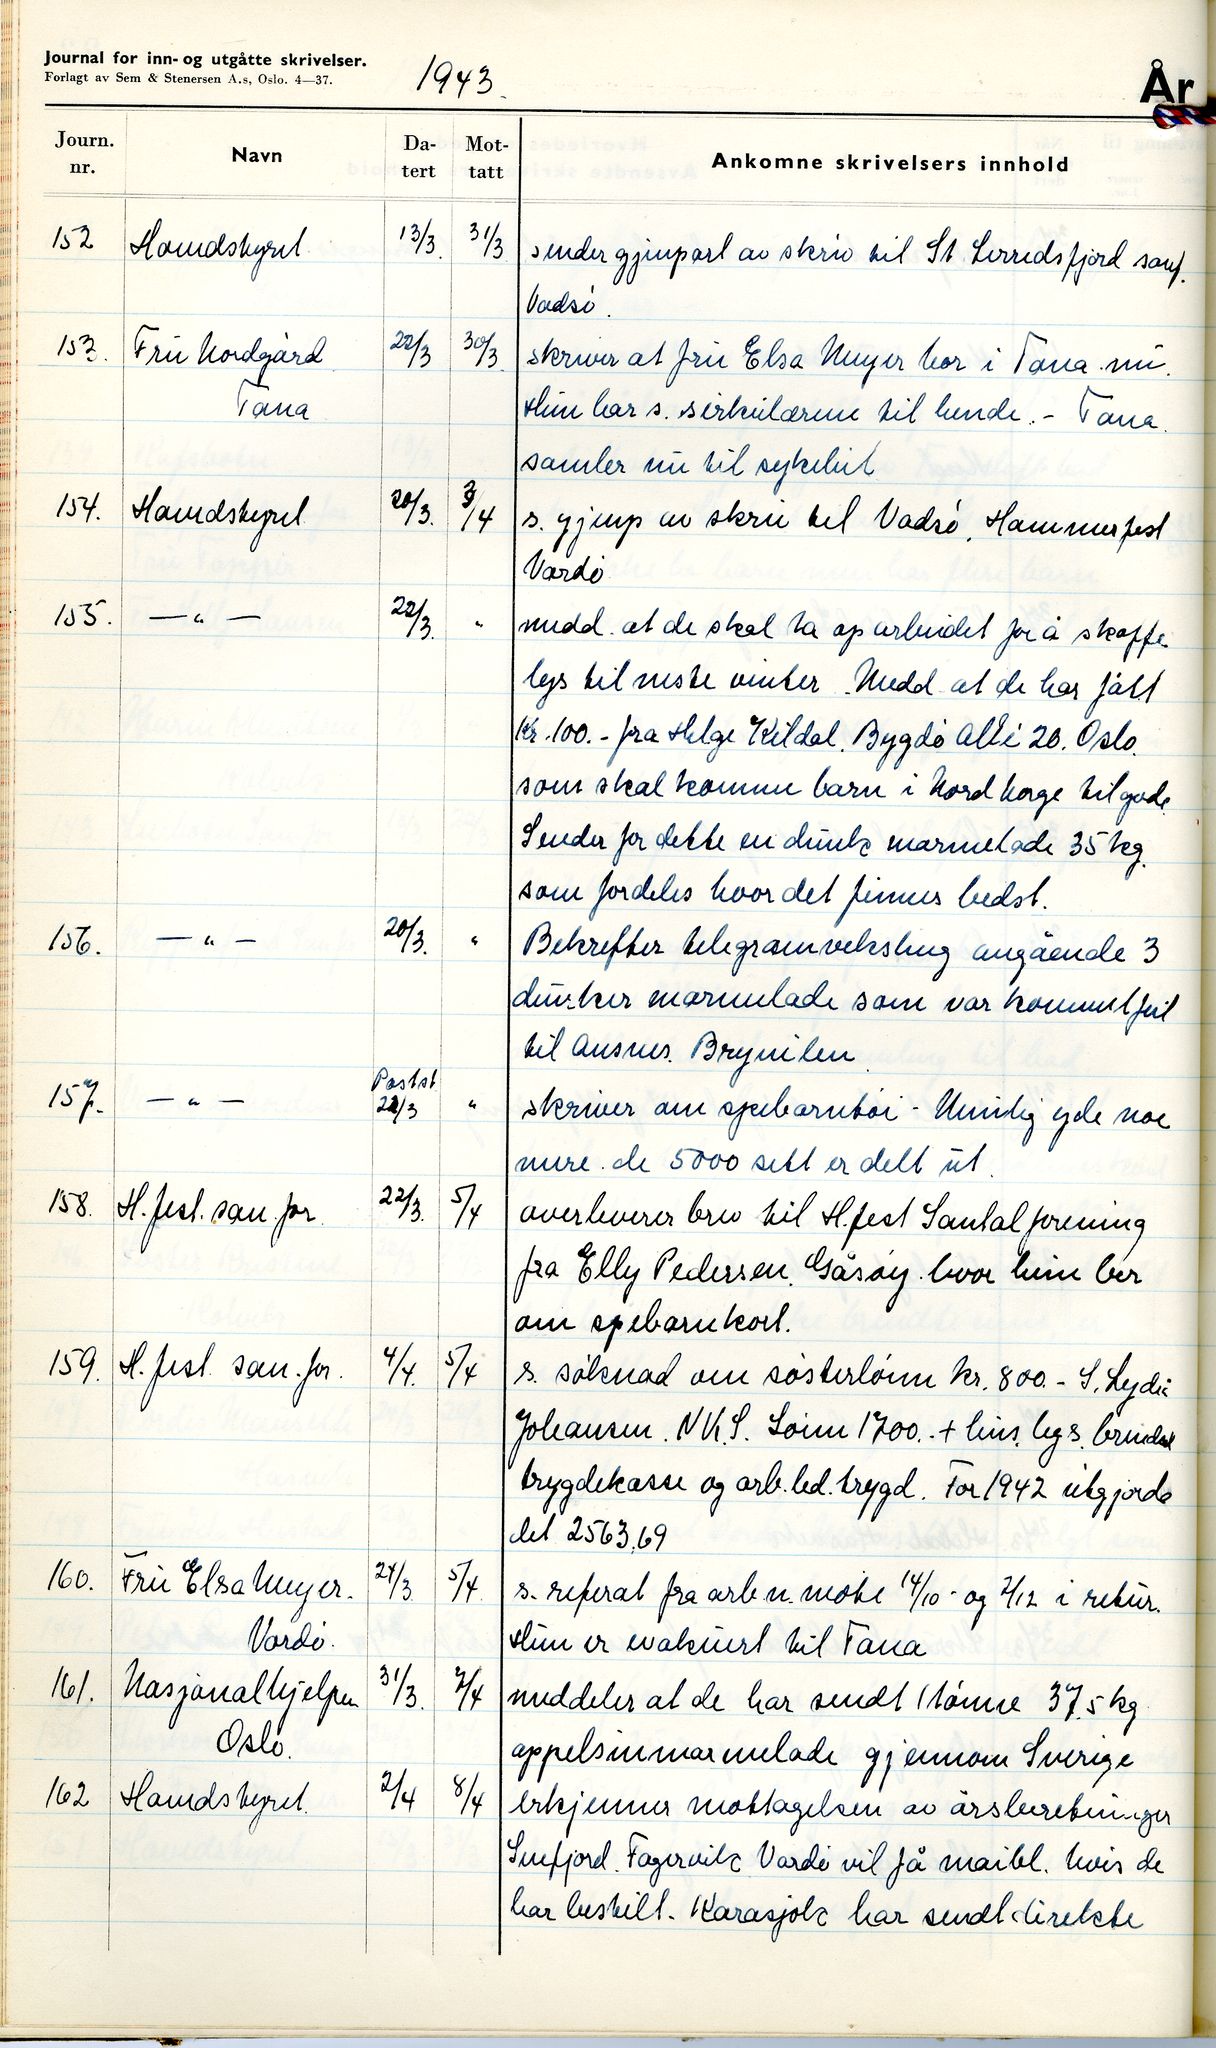 Journal for inn- og utgåtte skrivelser.
Forlagt av Sem & Stenersen A.s, Oslo. 4—37.
1943.
År
Journ. nr. Navn Datert Mottatt Ankomne skrivelsers innhold
152 Hovedstyret 13/3. 31/3 sender gjenpart av skriv til St. Lerredsfjord sanf.
Vadsö.
153. Fru Nordgård 22/3 30/3. skriver at fru Elsa Meyer bor i Tana nu.
Tana Hun har s. sirkulærene til hende. - Tana
samler nu til sykehus
154. Hovedstyret 20/3. 3/4 s. gjenp av skriv til Vadsö, Hammerfest
Vardö
155. — " — 22/3. " medd. at de skal ta op arbeidet for å skaffe
lys til neste vinter. Medd at de har fått
Kr. 100.- fra Helge Kildal. Bygdö Allé 20. Oslo.
som skal komme barn i Nord Norge tilgode.
Sender for dette en dunk marmelade 35 kg.
som fordeles hvor det finnes bedst.
156. — " — 20/3. " Bekrefter telegramveksling angående 3
dunker marmelade som var kommet feil
til Brynilen
157. — " — Postst. 22/3 " skriver om spebarntöi - Umulig yde noe
mere. de 5000 sett er delt ut.
158. H.fest. san. for 22/3. 5/4 overleverer brev til H.fest Santalforening
fra Elly Pedersen, Gåsöy. hvor hun ber
om spebarnkort.
159. H.fest. san. for. 4/4. 5/4 s. söknad om sösterlönn kr. 800.- S. Lydia
Johansen. N.K.S. Lönn 1700.- + hus, lys, brendsel
trygdekasse og arb.led. trygd. For 1942 utgjorde
det 2563,69
160. Fru Elsa Meyer. 24/3 5/4 s. referat fra arb.n. möte 14/10 - og 2/12 i retur.
Vardö. Hun er evakuert til Tana
161. Nasjonalhjelpen 31/3. 7/4 meddeler at de har sendt 1 tönne 37,5 kg
Oslo. appelsinmarmelade gjennom Sverige
162 Hovedstyret. 2/4 8/4 erkjenner mottagelsen av årsberetninger
Snefjord. Fagervik Vardö vil få maibl. hvis de
har bestilt. Karasjok har sendt direkte